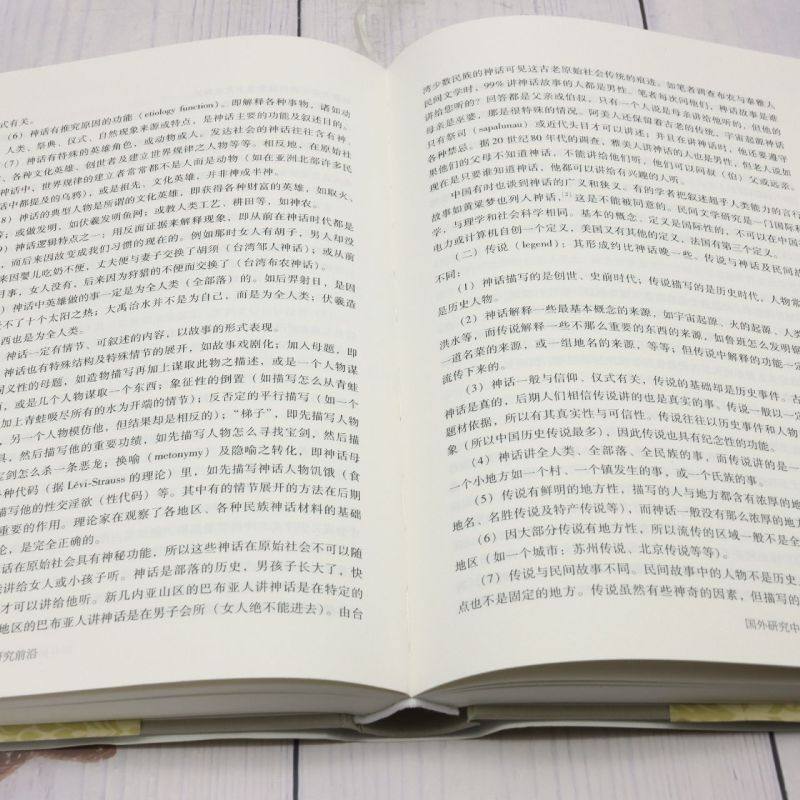 式有关。
（6）神话有推究原因的功能（etiology function）。即解释各种事物，诸如动
、人类、祭典、仪式、自然现象来源或特点，是神话主要的功能及叙述目的。
（7）神话有特殊的英雄角色，或动物或人。发达社会的神话往往含有神、
、各种文化英雄、创世者及建立世界规律之人物等等。相反地，在原始社
神话中，世界规律的建立者常常都不是人而是动物（如在亚洲北部许多民
话中都提及的乌鸦），或是祖先、文化英雄，并非神或半神。
8）神话的典型人物是所谓的文化英雄，即获得各种财富的英雄，如取火、
；或做发明，如伏羲发明鱼网；或教人类工艺、耕田等，如神农。
）神话逻辑特点之一：用反面证据来解释现象，即从前在神话时代都是
，而后来因故变成我们习惯的现在的。例如那时女人有胡子，男人却没
来因婴儿吃奶不便，丈夫便与妻子交换了胡须（台湾邹人神话）；或从前
月事，女人没有，后来因为狩猎的不便而交换了（台湾布农神话）。
）神话中英雄做的事一定是为全人类（全部落）的。如后羿射日，是因
受不了十个太阳之热；大禹治水并不是为自己，而是为全人类；伏羲造
西也是为全人类。
神话一定有情节、可叙述的内容，以故事的形式表现。
神话也有特殊结构及特殊情节的展开，如故事戏剧化；加入母题，即
同义性的母题，如造物描写再加上谋取此物之描述，或是一个人物谋
西，或是几个人物谋取一个东西；象征性的倒置（如描写怎么从青蛙
加上青蛙吸尽所有的水为开端的情节）；反否定的平行描写（如一个
，另一个人物模仿他，但结果却是相反的）；“梯子”，即先描写人物
具，然后描写他的重要功绩，如先描写人物怎么寻找宝剑，然后描
宝剑怎么杀一条恶龙；换喻（metonymy）及隐喻之转化，即神话母
各种代码（据 Lévi-Strauss 的理论）里，如先描写神话人物饥饿（食
描写他的性交淫欲（性代码）等。其中有的情节展开的方法在后期
重要的作用。理论家在观察了各地区、各种民族神话材料的基础
论，是完全正确的。
话在原始社会具有神秘功能，所以这些神话在原始社会不可以随
能讲给女人或小孩子听。神话是部落的历史，男孩子长大了，快
才可以讲给他听。新几内亚山区的巴布亚人讲神话是在特定的
地区的巴布亚人讲神话是在男子会所（女人绝不能进去）。由台
研究前沿
湾少数民族的神话可见这古老原始社会传统的痕迹。如笔者调查布农与泰雅人
民间文学时，99%讲神话故事的人都是男性。笔者每次问他们，神话故事是谁
讲给您听的？回答都是父亲或伯叔，只有一个人说是母亲讲给他听的，但他的
母亲是巫婆，那是很特殊的情况。阿美人还保留着古老的传统，宇宙起源神话
只有祭司（sapalunau）或近代头目才可以讲述；并且在讲神话时，他还要遵守
各种禁忌。据 20 世纪 80 年代的调查，雅美人讲神话的人也是男性，但老人说如
果他们的父母不知道神话，不能讲给他们听，他们可以问叔（伯）父或远亲。
现在是只要谁知道神话，他都可以讲给有兴趣的人听。
中国有时也谈到神话的广义和狭义。有的学者把叙述超乎人类能力的言行
故事如黄粱梦也列入神话，[2]这是不能被同意的。民间文学研究是一门国际科
学，与理学和社会科学相同。基本的概念、定义是国际性的，不可以在中国
电力或计算机自创一个定义，美国又有其他的定义，法国有第三个定义。
（二）传说（legend）；其形成约比神话晚一些。传说与神话及民间故
不同：
（1）神话描写的是创世、史前时代；传说描写的是历史时代，人物常
是历史人物。
（2）神话解释一些最基本概念的来源，如宇宙起源、火的起源、人类
洪水等，而传说解释一些不那么重要的东西的来源，如鲁班怎么发明锯
一道名菜的来源，或一组地名的来源，等等；但传说中解释的功能一定
流传下来的。
（3）神话一般与信仰、仪式有关，传说的基础却是历史事件。古
神话是真的，后期人们相信传说讲的也是真实的事。传说一般以一定
题材依据，所以有其真实性与可信性。传说往往以历史事件和人物
象（所以中国历史传说最多），因此传说也具有纪念性的功能。
（4）神话讲全人类、全部落、全民族的事，而传说讲的是一
一个小地方如一个村、一个镇发生的事，或一个氏族的事。
（5）传说有鲜明的地方性，描写的人与地方都含有浓厚的地
地名、名胜传说及特产传说等），而神话一般没有那么浓厚的地方
（6）因大部分传说有地方性，所以流传的区域一般不是全
地区（如一个城市；苏州传说、北京传说等等）。
（7）传说与民间故事不同。民间故事中的人物不是历史
点也不是固定的地方。传说虽然有些神奇的因素，但描写的
国外研究中